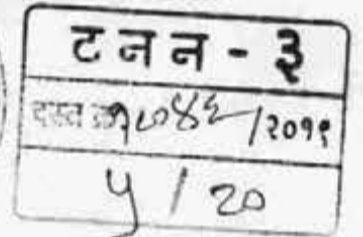 ट न न - ३
दस्त क्र /२०१९
५ / २०